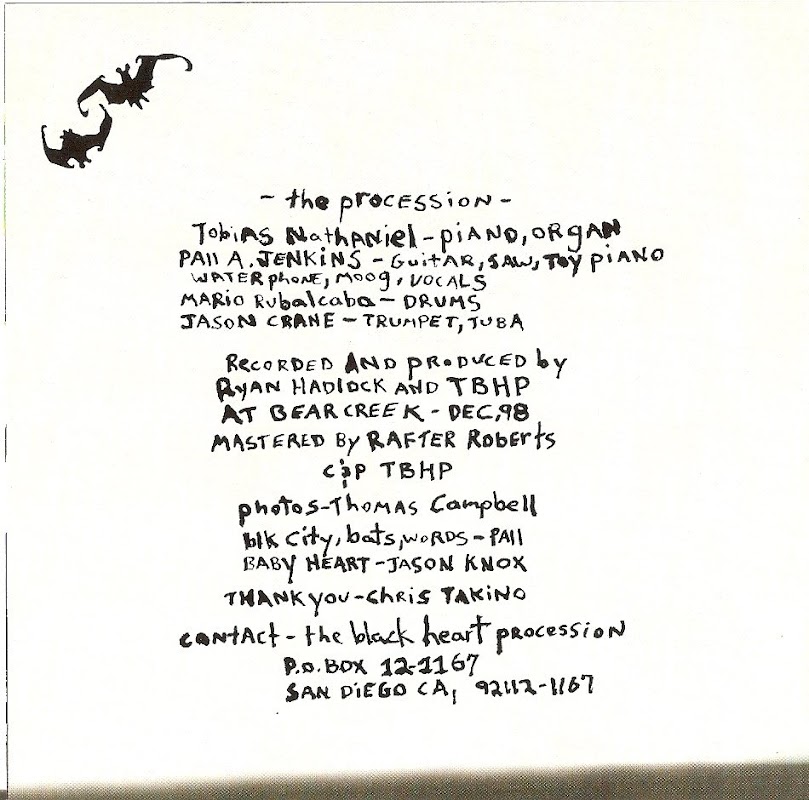 - the procession -
Tobias Nathaniel - piano, organ
Pall A. Jenkins - guitar, saw, toy piano
waterphone, moog, vocals
Mario Rubalcaba - drums
Jason Crane - trumpet, tuba
Recorded and produced by
Ryan Hadlock and TBHP
at Bear Creek - Dec, 98
Mastered by Rafter Roberts
c & p TBHP
photos - Thomas Campbell
blk city, bats, words - Pall
Baby Heart - Jason Knox
Thank you - Chris Takino
contact - the black heart procession
P.O. Box 12-1167
San Diego CA, 92112-1167